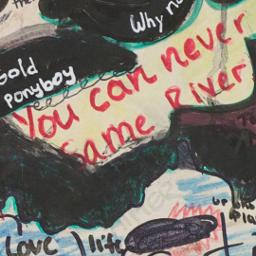 the
Why no
Gold
Ponyboy
You can never
same River
Love
life
up